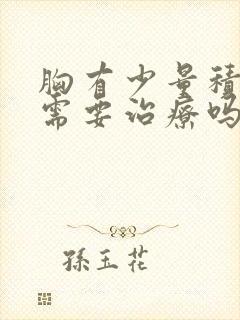 胸有少量積
需要治療吗
孫玉花